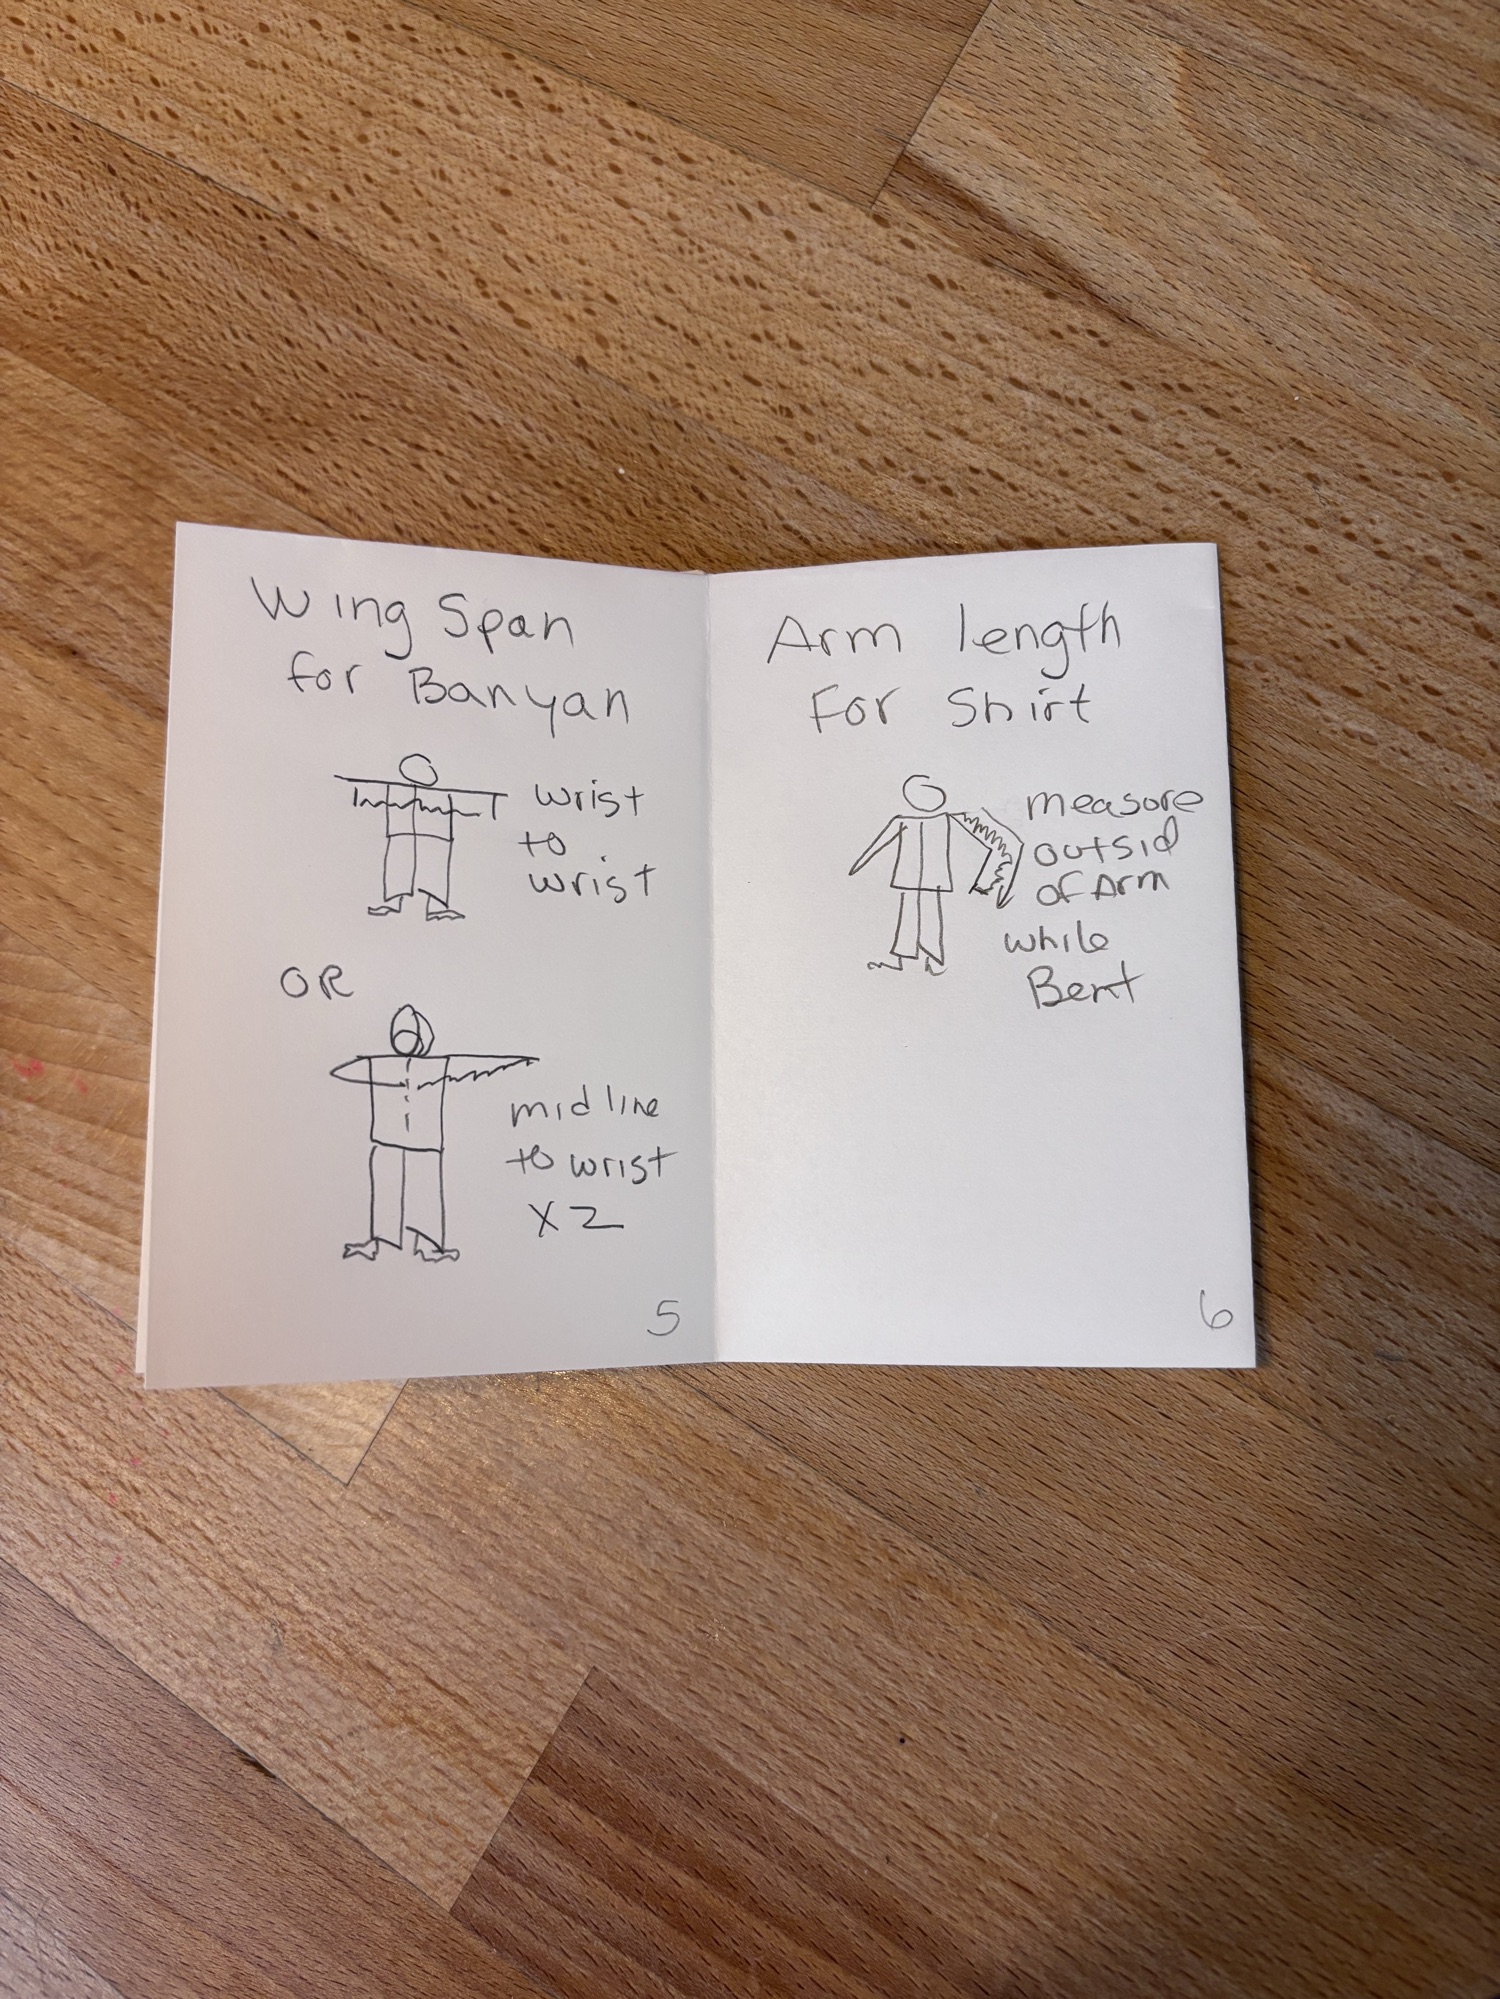 Wing Span
for Banyan
wrist
to
wrist
OR
midline
to wrist
X2
5
Arm length
For Shirt
measure
outsid
of Arm
while
Bent
6